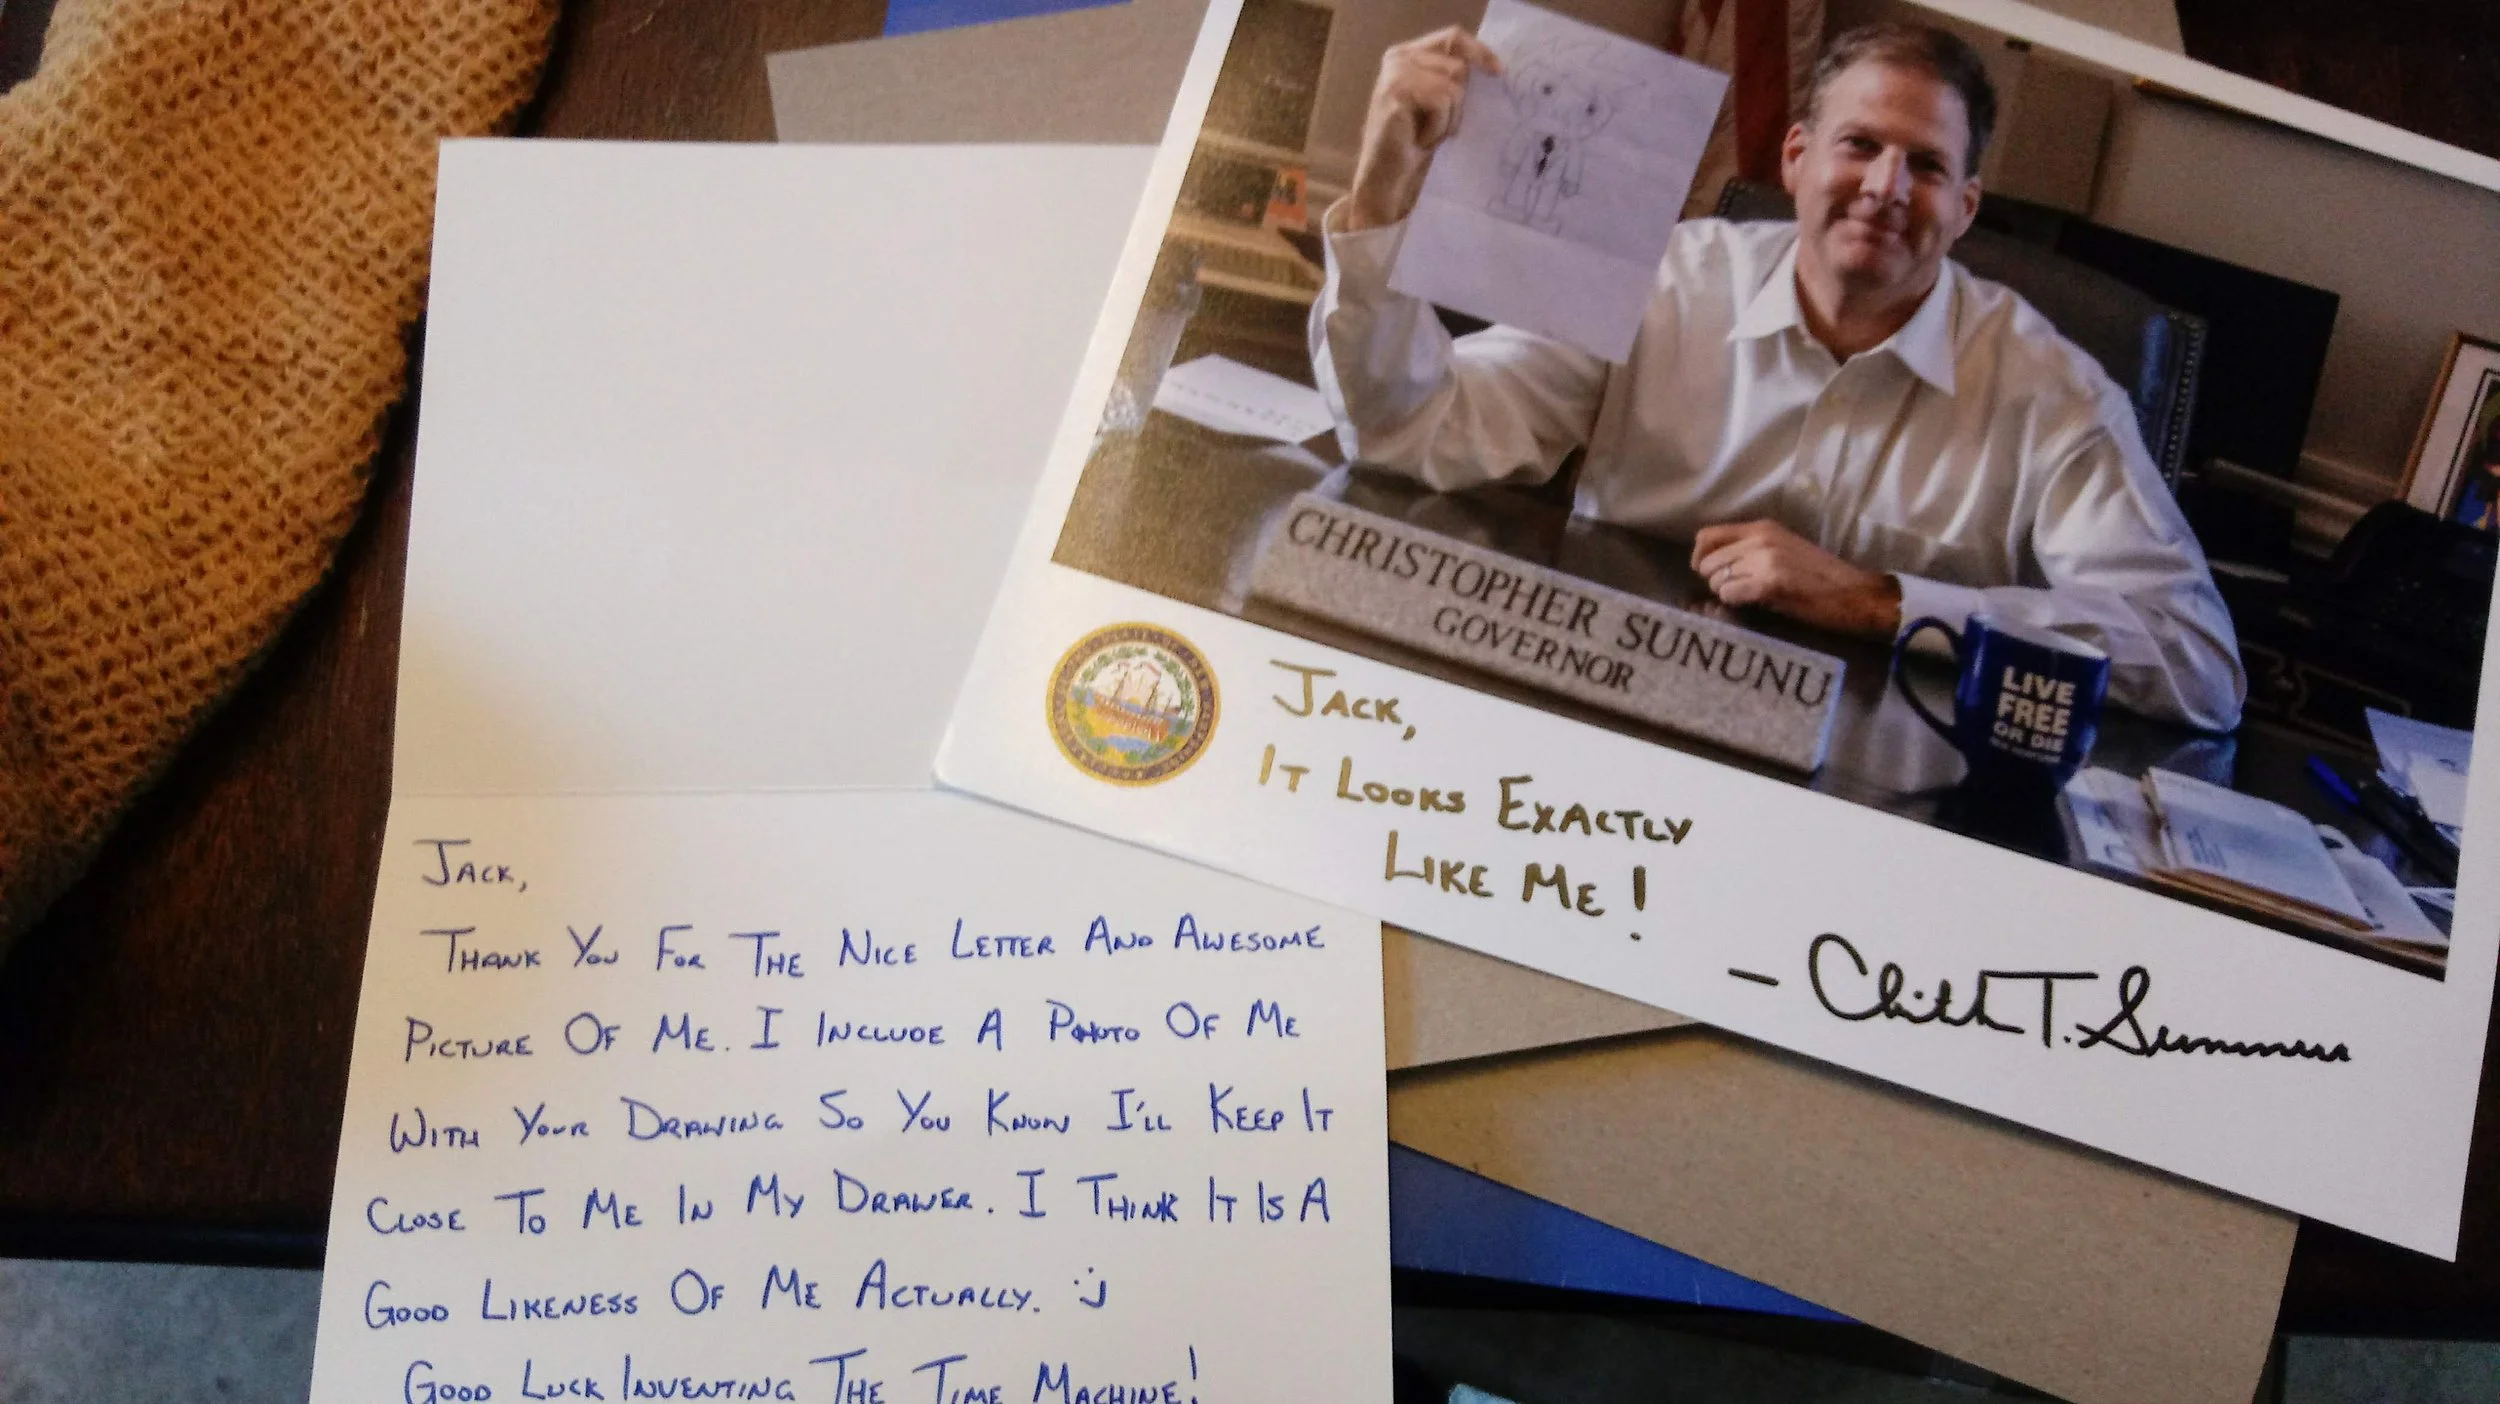 CHRISTOPHER SUNUNU
GOVERNOR
LIVE
FREE
OR DIE
JACK,
IT LOOKS EXACTLY
LIKE ME!
- Christopher T. Sununu
JACK,
THANK YOU FOR THE NICE LETTER AND AWESOME
PICTURE OF ME. I INCLUDE A PHOTO OF ME
WITH YOUR DRAWING SO YOU KNOW I'LL KEEP IT
CLOSE TO ME IN MY DRAWER. I THINK IT IS A
GOOD LIKENESS OF ME ACTUALLY. :)
GOOD LUCK INVENTING THE TIME MACHINE!